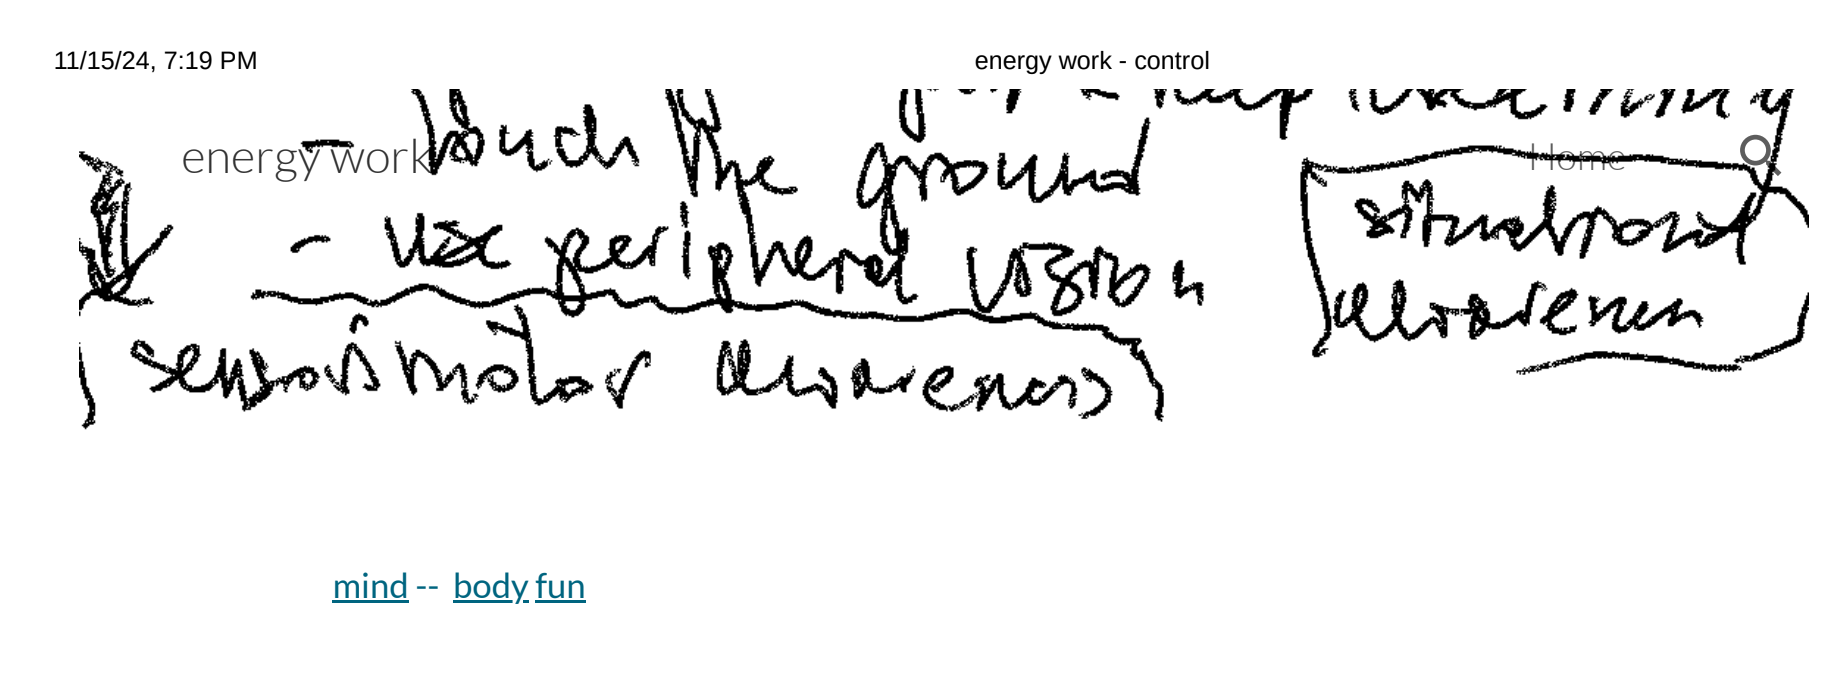 11/15/24, 7:19 PM energy work - control
energy work Home
- touch the ground
- use peripheral vision
situational
awareness
sensorimotor awareness
mind -- body fun